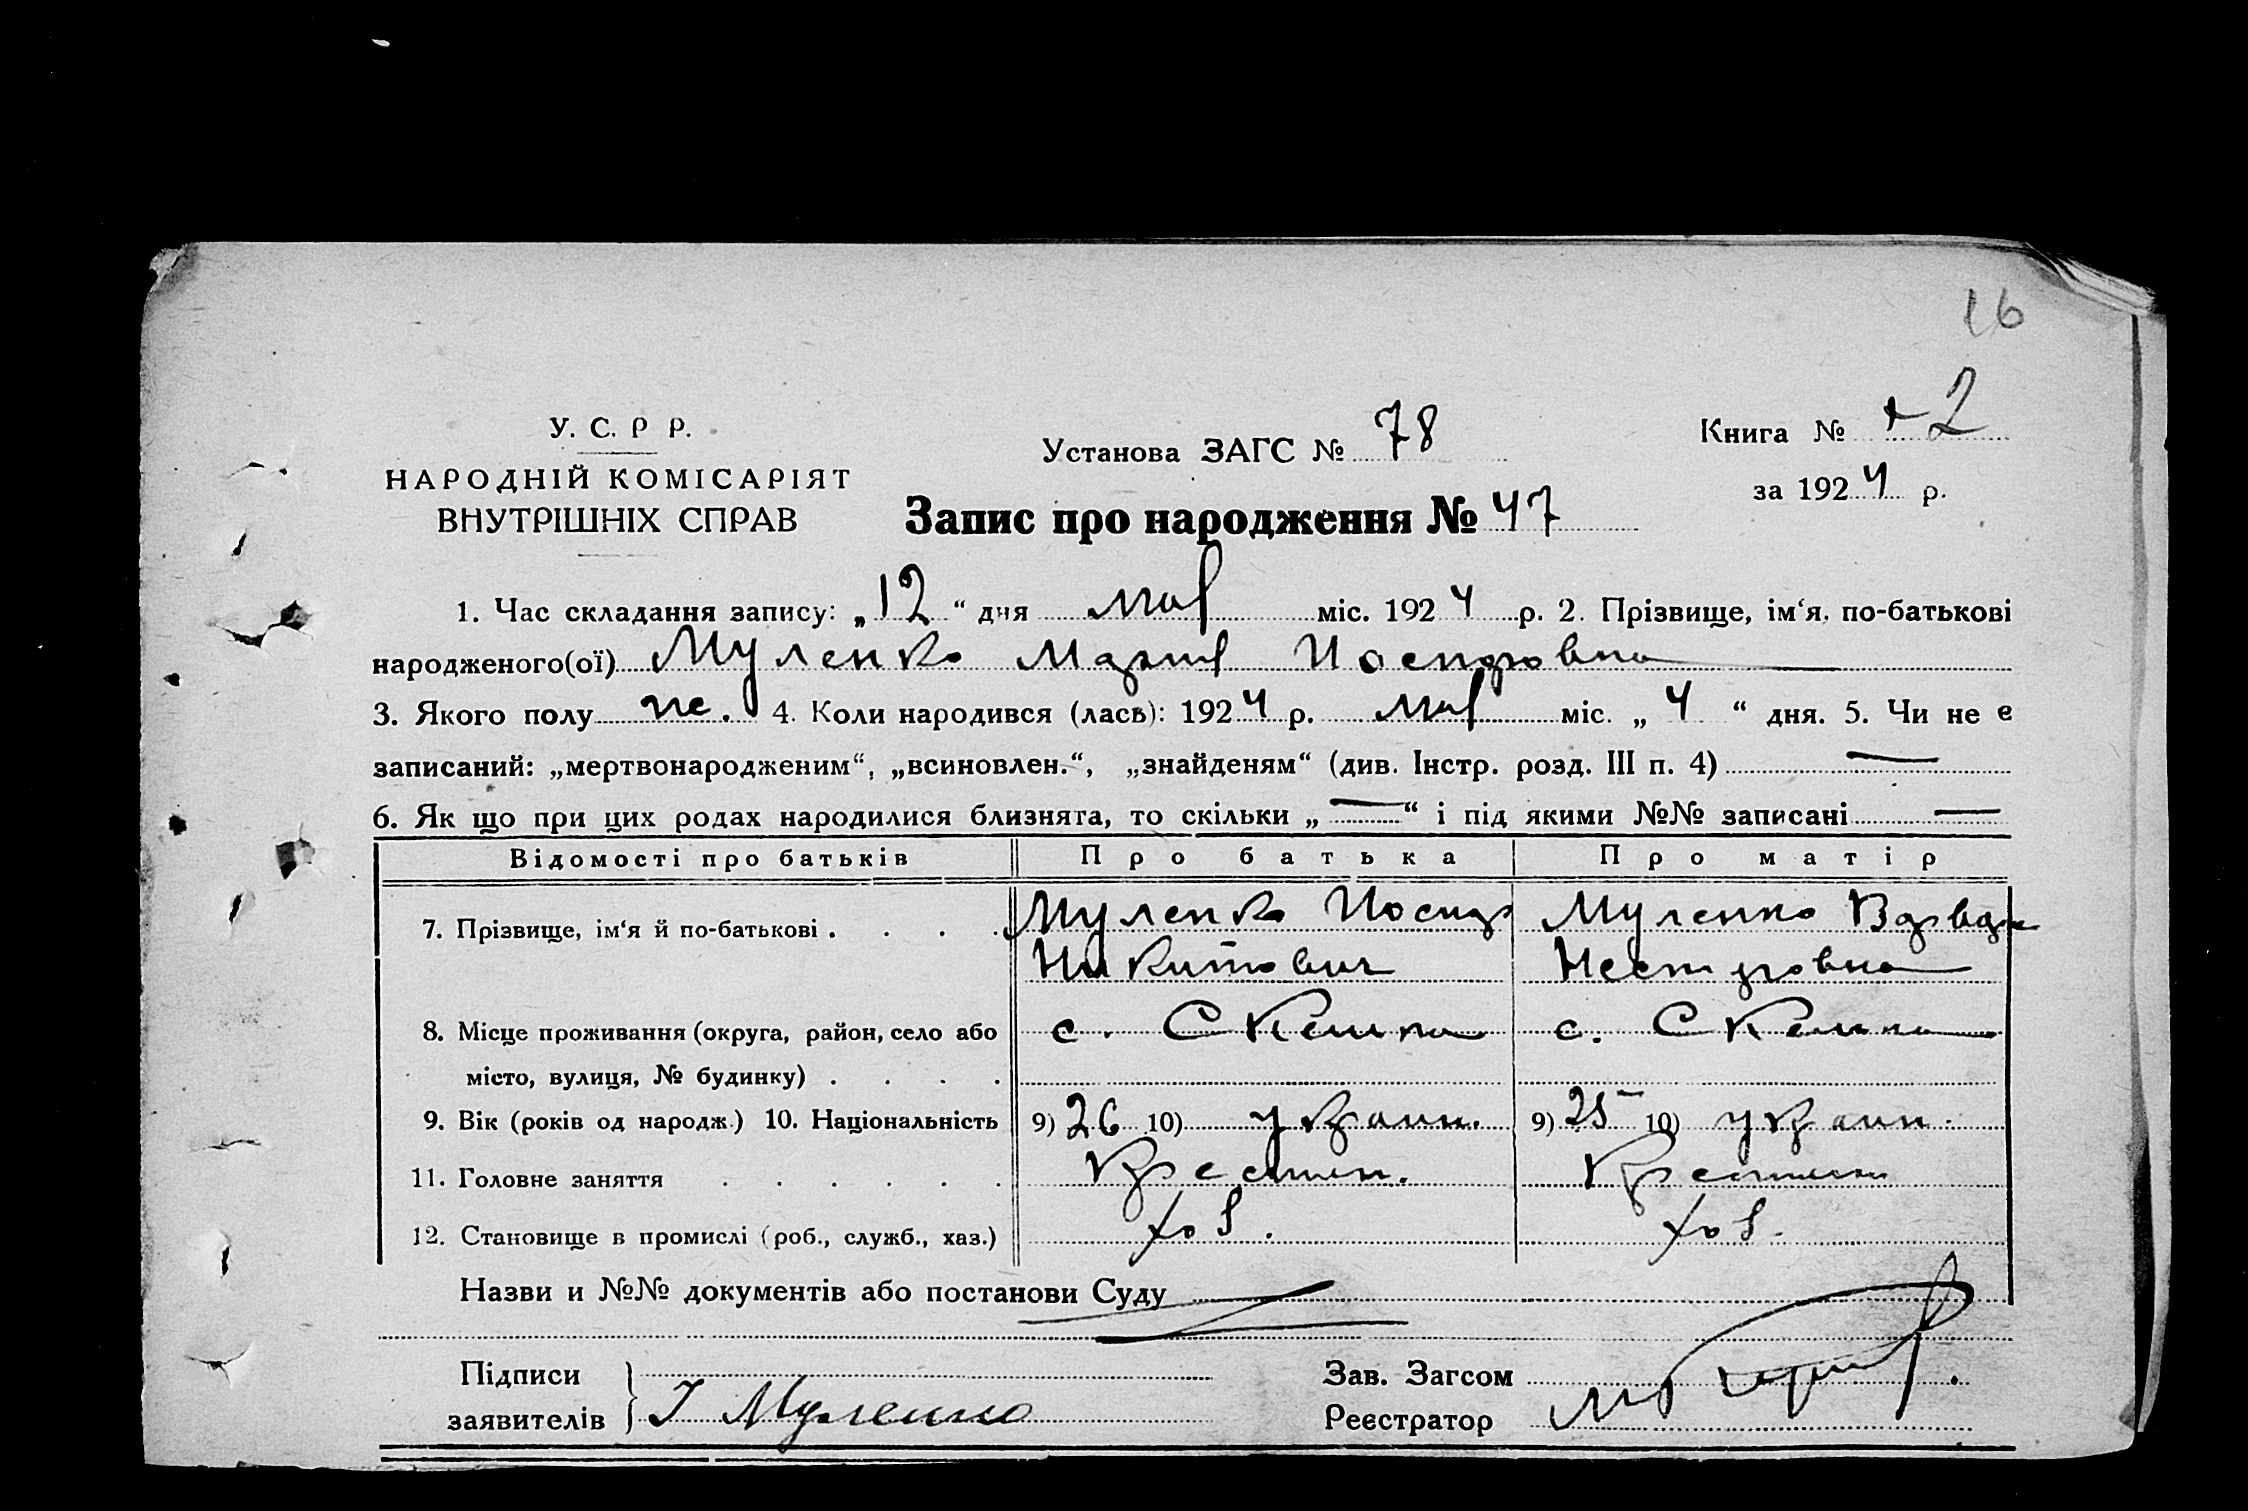 16
У. С. Р Р.
НАРОДНІЙ КОМІСАРІЯТ
ВНУТРІШНІХ СПРАВ
Установа ЗАГС № 78
Книга № 2
за 1924 р.
Запис про народження № 47
1. Час складання запису: „12“ дня мая міс. 1924 р. 2. Прізвище, ім‘я, по-батькові
народженого(ої) Муленко Мария Иосиповна
3. Якого полу же. 4. Коли народився (лась): 1924 р. мая міс. „4“ дня. 5. Чи не є
записаний: „мертвонародженим“, „всиновлен.“, „знайденям“ (див. Інстр. розд. III п. 4) —
6. Як що при цих родах народилися близнята, то скільки „—“ і під якими №№ записані —
Відомості про батьків Про батька Про матір
7. Прізвище, ім‘я й по-батькові . . . . Муленко Иосип Муленко Варвара
Никитович Несторовна
8. Місце проживання (округа, район, село або с. с.
місто, вулиця, № будинку) . . . .
9. Вік (років од народж.) 10. Національність 9) 26 10) украин. 9) 25 10) украин.
11. Головне заняття . . . . . . Крестян.
12. Становище в промислі (роб., служб., хаз.) хоз. хоз.
Назви и №№ документів або постанови Суду
Підписи
заявителів І Муленко
Зав. Загсом
Реєстратор